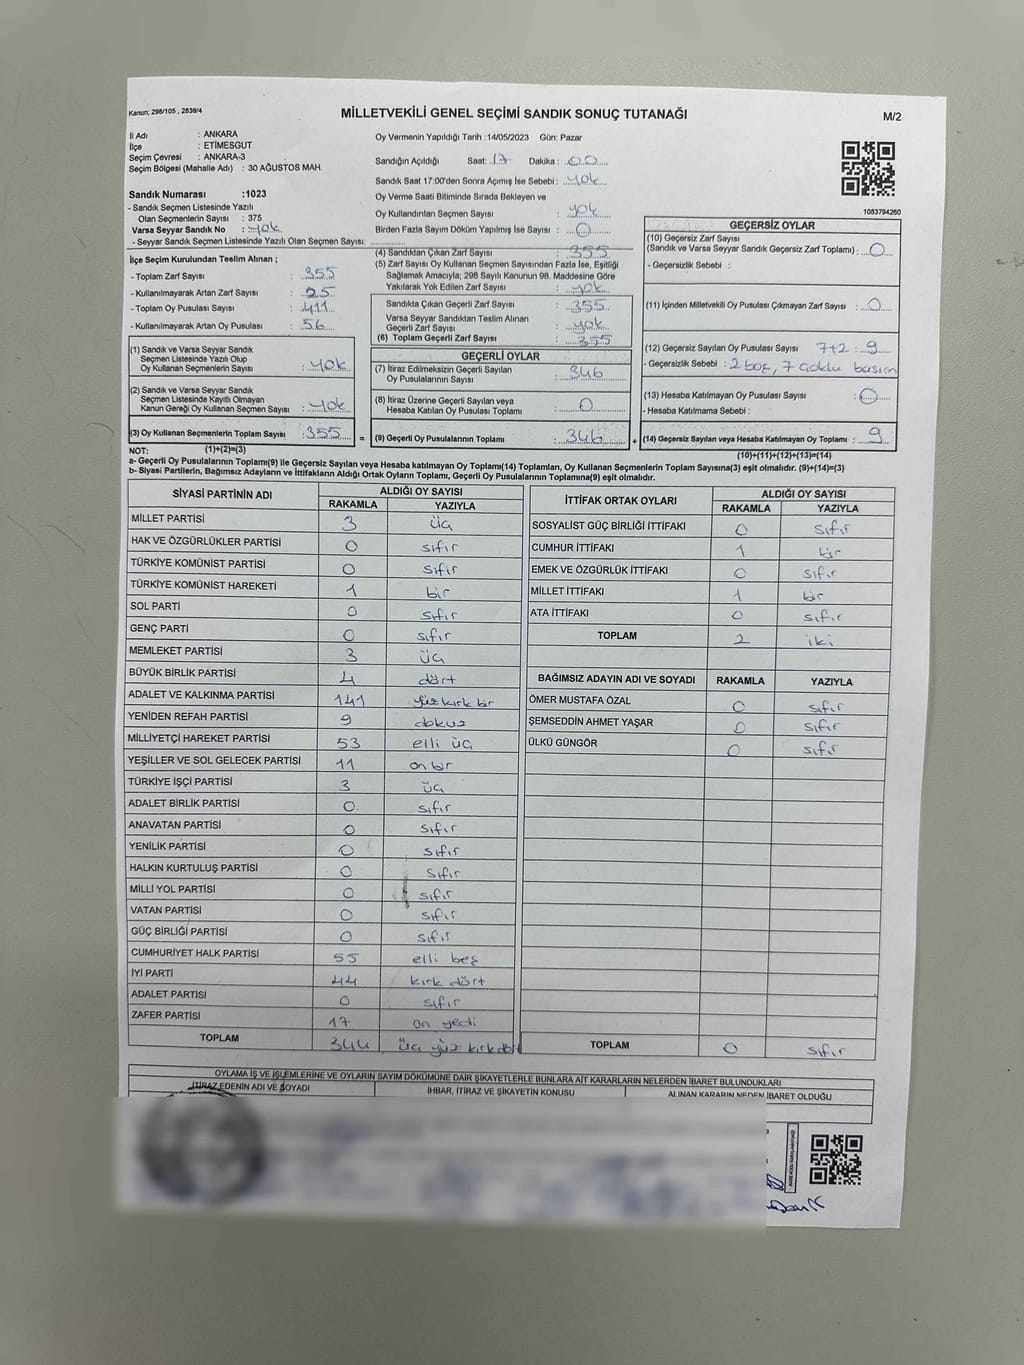 Kanun; 298/105 , 2839/4
MİLLETVEKİLİ GENEL SEÇİMİ SANDIK SONUÇ TUTANAĞI
M/2
İl Adı : ANKARA
İlçe : ETİMESGUT
Seçim Çevresi : ANKARA-3
Seçim Bölgesi (Mahalle Adı) : 30 AĞUSTOS MAH.
Sandık Numarası :1023
- Sandık Seçmen Listesinde Yazılı
Olan Seçmenlerin Sayısı : 375
Varsa Seyyar Sandık No : yok
- Seyyar Sandık Seçmen Listesinde Yazılı Olan Seçmen Sayısı:
İlçe Seçim Kurulundan Teslim Alınan ;
- Toplam Zarf Sayısı : 355
- Kullanılmayarak Artan Zarf Sayısı : 25
- Toplam Oy Pusulası Sayısı : 411
- Kullanılmayarak Artan Oy Pusulası : 56
(1) Sandık ve Varsa Seyyar Sandık
Seçmen Listesinde Yazılı Olup
Oy Kullanan Seçmenlerin Sayısı : yok
(2) Sandık ve Varsa Seyyar Sandık
Seçmen Listesinde Kayıtlı Olmayan
Kanun Gereği Oy Kullanan Seçmen Sayısı : yok
(3) Oy Kullanan Seçmenlerin Toplam Sayısı : 355
Oy Vermenin Yapıldığı Tarih :14/05/2023 Gün: Pazar
Sandığın Açıldığı Saat: 17 Dakika : 00
Sandık Saat 17:00'den Sonra Açılmış İse Sebebi : yok
Oy Verme Saati Bitiminde Sırada Bekleyen ve
Oy Kullandırılan Seçmen Sayısı : yok
Birden Fazla Sayım Döküm Yapılmış İse Sayısı : 0
(4) Sandıktan Çıkan Zarf Sayısı : 355
(5) Zarf Sayısı Oy Kullanan Seçmen Sayısından Fazla İse, Eşitliği
Sağlamak Amacıyla; 298 Sayılı Kanunun 98. Maddesine Göre
Yakılarak Yok Edilen Zarf Sayısı : yok
Sandıkta Çıkan Geçerli Zarf Sayısı : 355
Varsa Seyyar Sandıktan Teslim Alınan
Geçerli Zarf Sayısı : yok
(6) Toplam Geçerli Zarf Sayısı : 355
GEÇERLİ OYLAR
(7) İtiraz Edilmeksizin Geçerli Sayılan
Oy Pusulalarının Sayısı : 346
(8) İtiraz Üzerine Geçerli Sayılan veya
Hesaba Katılan Oy Pusulası Toplamı : 0
= (9) Geçerli Oy Pusulalarının Toplamı : 346 +
1083794260
GEÇERSİZ OYLAR
(10) Geçersiz Zarf Sayısı
(Sandık ve Varsa Seyyar Sandık Geçersiz Zarf Toplamı) : 0
- Geçersizlik Sebebi :
(11) İçinden Milletvekili Oy Pusulası Çıkmayan Zarf Sayısı : 0
(12) Geçersiz Sayılan Oy Pusulası Sayısı 7+2 : 9
- Geçersizlik Sebebi : 2 boş, 7 çoklu basım
(13) Hesaba Katılmayan Oy Pusulası Sayısı : 0
- Hesaba Katılmama Sebebi :
(14) Geçersiz Sayılan veya Hesaba Katılmayan Oy Toplamı : 9
NOT: (1)+(2)=(3)
(10)+(11)+(12)+(13)=(14)
a- Geçerli Oy Pusulalarının Toplamı(9) ile Geçersiz Sayılan veya Hesaba katılmayan Oy Toplamı(14) Toplamları, Oy Kullanan Seçmenlerin Toplam Sayısına(3) eşit olmalıdır. (9)+(14)=(3)
b- Siyasi Partilerin, Bağımsız Adayların ve İttifakların Aldığı Ortak Oyların Toplamı, Geçerli Oy Pusulalarının Toplamına(9) eşit olmalıdır.
SİYASİ PARTİNİN ADI ALDIĞI OY SAYISI
RAKAMLA YAZIYLA
MİLLET PARTİSİ 3 üç
HAK VE ÖZGÜRLÜKLER PARTİSİ 0 sıfır
TÜRKİYE KOMÜNİST PARTİSİ 0 sıfır
TÜRKİYE KOMÜNİST HAREKETİ 1 bir
SOL PARTİ 0 sıfır
GENÇ PARTİ 0 sıfır
MEMLEKET PARTİSİ 3 üç
BÜYÜK BİRLİK PARTİSİ 4 dört
ADALET VE KALKINMA PARTİSİ 141 yüz kırk bir
YENİDEN REFAH PARTİSİ 9 dokuz
MİLLİYETÇİ HAREKET PARTİSİ 53 elli üç
YEŞİLLER VE SOL GELECEK PARTİSİ 11 on bir
TÜRKİYE İŞÇİ PARTİSİ 3 üç
ADALET BİRLİK PARTİSİ 0 sıfır
ANAVATAN PARTİSİ 0 sıfır
YENİLİK PARTİSİ 0 sıfır
HALKIN KURTULUŞ PARTİSİ 0 sıfır
MİLLİ YOL PARTİSİ 0 sıfır
VATAN PARTİSİ 0 sıfır
GÜÇ BİRLİĞİ PARTİSİ 0 sıfır
CUMHURİYET HALK PARTİSİ 55 elli beş
İYİ PARTİ 44 kırk dört
ADALET PARTİSİ 0 sıfır
ZAFER PARTİSİ 17 on yedi
TOPLAM 344 üç yüz kırk dört
İTTİFAK ORTAK OYLARI ALDIĞI OY SAYISI
RAKAMLA YAZIYLA
SOSYALİST GÜÇ BİRLİĞİ İTTİFAKI 0 sıfır
CUMHUR İTTİFAKI 1 bir
EMEK VE ÖZGÜRLÜK İTTİFAKI 0 sıfır
MİLLET İTTİFAKI 1 bir
ATA İTTİFAKI 0 sıfır
TOPLAM 2 iki
BAĞIMSIZ ADAYIN ADI VE SOYADI RAKAMLA YAZIYLA
ÖMER MUSTAFA ÖZAL 0 sıfır
ŞEMSEDDİN AHMET YAŞAR 0 sıfır
ÜLKÜ GÜNGÖR 0 sıfır
TOPLAM 0 sıfır
OYLAMA İŞ VE İŞLEMLERİNE VE OYLARIN SAYIM DÖKÜMÜNE DAİR ŞİKAYETLERLE BUNLARA AİT KARARLARIN NELERDEN İBARET BULUNDUKLARI
İTİRAZ EDENİN ADI VE SOYADI İHBAR, İTİRAZ VE ŞİKAYETİN KONUSU ALINAN KARARIN NEDEN İBARET OLDUĞU